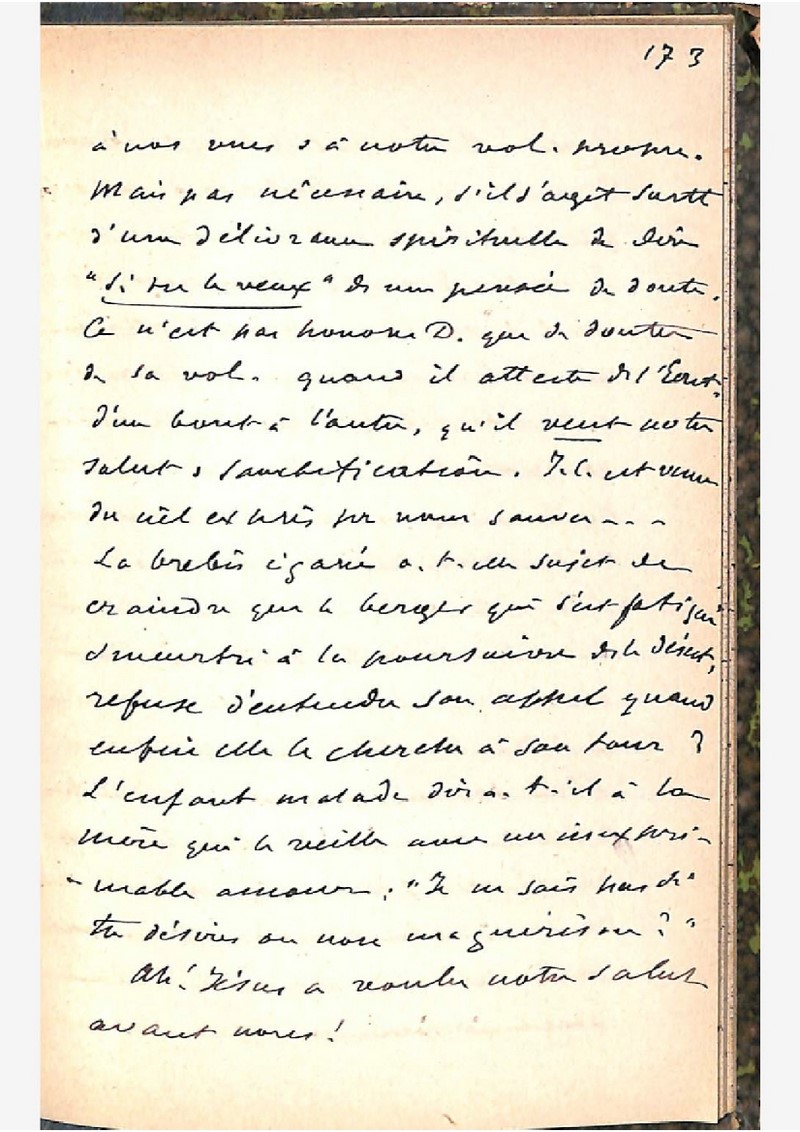 173
à nos vues & à notre vol. propre.
Mais pas nécessaire, s'il s'agit surtt
d'une délivrance spirituelle de dire
"si tu le veux" ds une pensée de doute.
Ce n'est pas honorer D. que de douter
de sa vol. quand il atteste ds l'Ecrit.
d'un bout à l'autre, qu'il veut notre
salut & sanctification. J.C. est venu
du ciel exprès pr nous sauver...
La brebis égarée a-t-elle sujet de
craindre que le berger qui s'est fatigué
& meurtri à la poursuivre ds le désert,
refuse d'entendre son appel quand
enfin elle le cherche à son tour ?
L'enfant malade dira-t-il à la
mère qui le veille avec un inexpri-
mable amour : "Je ne sais pas si
tu désires ou non ma guérison ?"
Ah ! Jésus a voulu notre salut
avant nous !